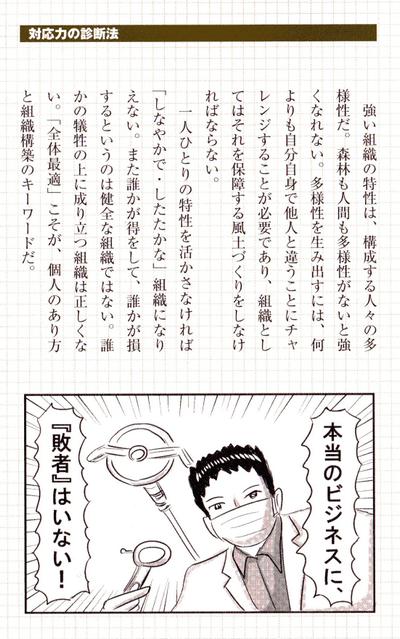 対応力の診断法
強い組織の特性は、構成する人々の多
様性だ。森林も人間も多様性がないと強
くなれない。多様性を生み出すには、何
よりも自分自身で他人と違うことにチャ
レンジすることが必要であり、組織とし
てはそれを保障する風土づくりをしなけ
ればならない。
一人ひとりの特性を活かさなければ
「しなやかで・したたかな」組織になり
えない。また誰かが得をして、誰かが損
するというのは健全な組織ではない。誰
かの犠牲の上に成り立つ組織は正しくな
い。「全体最適」こそが、個人のあり方
と組織構築のキーワードだ。
本当のビジネスに、
『敗者』はいない！